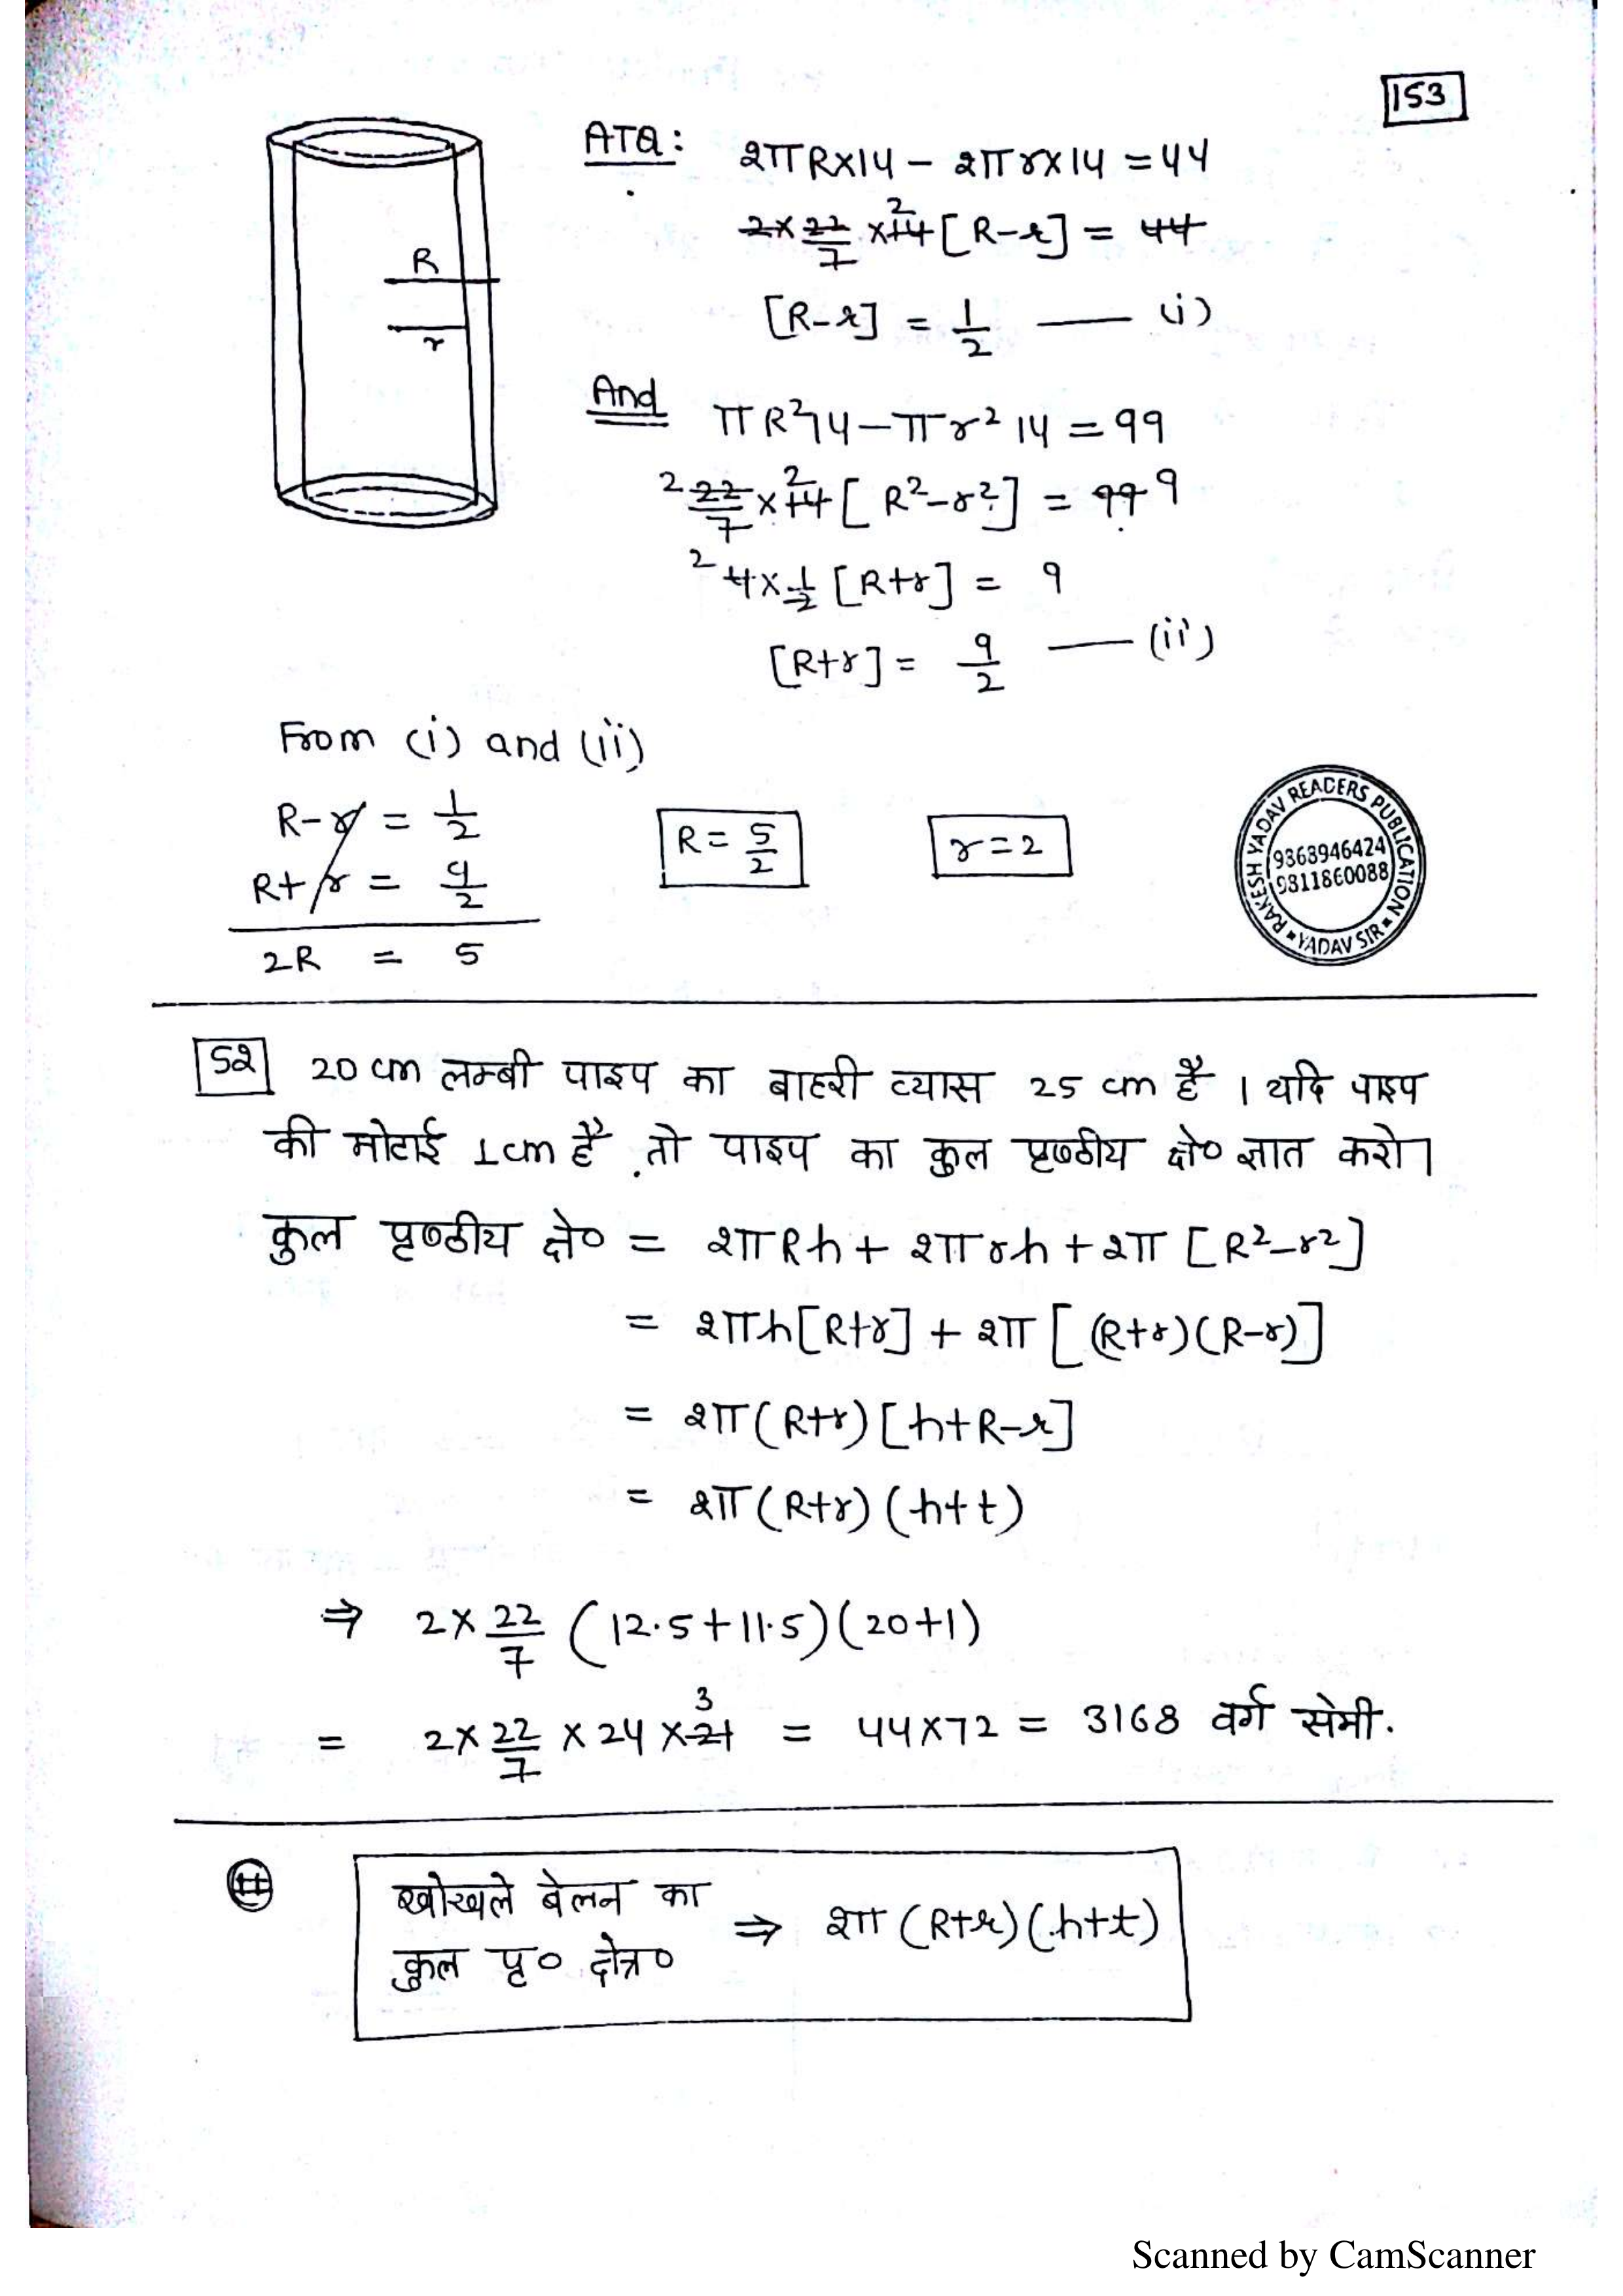 153
ATQ: 2πR×14 − 2πr×14 = 44
2×22/7 ×14 2 [R−r] = 44
[R−r] = 1/2 —— (i)
And πR²14 − πr²14 = 99
2 22/7 × 14 2 [R²−r²] = 99 9
2 4×1/2 [R+r] = 9
[R+r] = 9/2 —— (ii)
R
r
From (i) and (ii)
R−r = 1/2
R+r = 9/2
2R = 5
R = 5/2
r = 2
RAKESH YADAV READERS PUBLICATION
9868946424
9811860088
YADAV SIR
52 20 cm लम्बी पाइप का बाहरी व्यास 25 cm है । यदि पाइप
की मोटाई 1cm है तो पाइप का कुल पृष्ठीय क्षे० ज्ञात करो।
कुल पृष्ठीय क्षे० = 2πRh + 2πrh + 2π [R²−r²]
= 2πh[R+r] + 2π [(R+r)(R−r)]
= 2π(R+r)[h+R−r]
= 2π(R+r)(h+t)
⇒ 2×22/7 (12.5+11.5)(20+1)
= 2×22/7 × 24 × 21 3 = 44×72 = 3168 वर्ग सेमी.
# खोखले बेलन का
कुल पृ० क्षेत्र० ⇒ 2π (R+r)(h+t)
Scanned by CamScanner